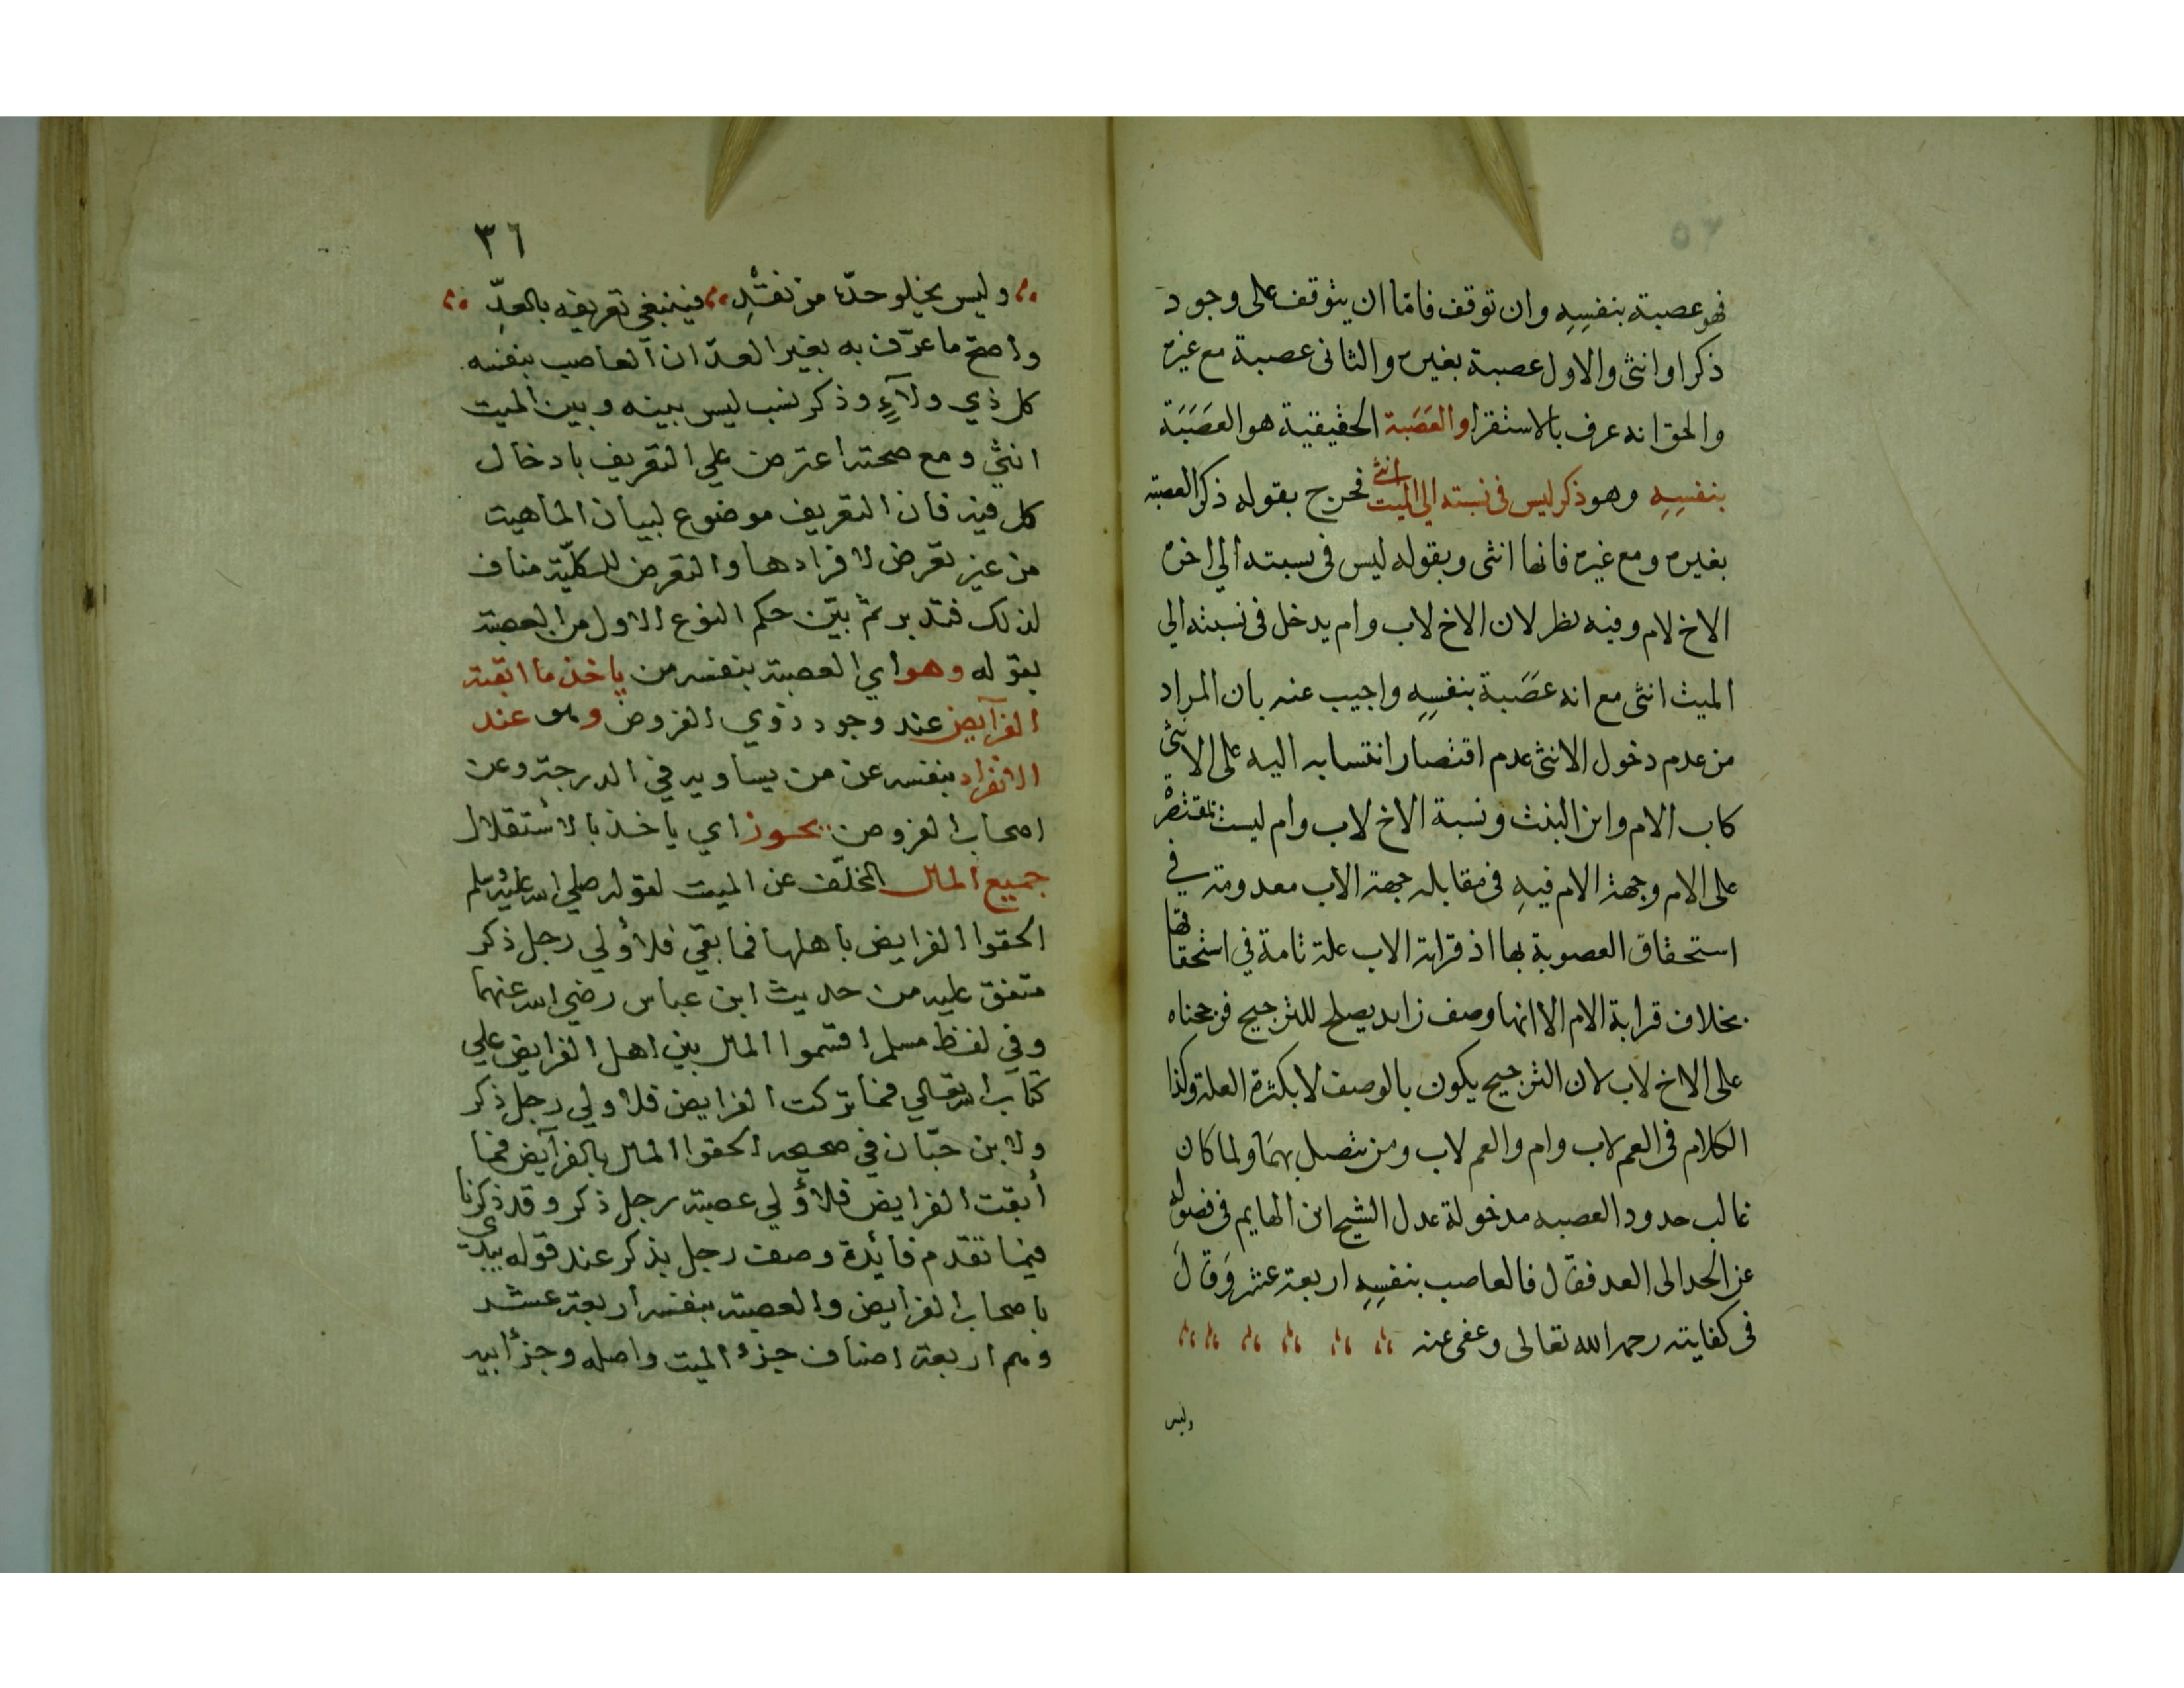 فهو عصبة بنفسه وان توقف فامّا ان يتوقف على وجود
ذكر او انثى والاول عصبة بغيره والثانى عصبة مع غيره
والحق انه عرف بالاستقرا والعَصَبة الحقيقية هو العَصَبَة
بنفسِهِ وهو ذكر ليس فى نسبته الي الميت انثى فخرج بقوله ذكر العصبة
بغيره ومع غيره فانها انثى وبقوله ليس فى نسبته الي اخره
الاخ لام وفيه نظر لان الاخ لاب وام يدخل فى نسبته الى
الميت انثى مع انه عَصَبة بنفسِهِ واجيب عنه بان المراد
من عدم دخول الانثى عدم اقتصار انتسابه اليه على الانثى
كاب الام وابن البنت ونسبة الاخ لاب وام ليست بمقتصرة
على الام وجهة الام فيهِ فى مقابله جهة الاب معدومة في
استحقاق العصوبة بها اذ قرابة الاب علة تامة في استحقاقها
بخلاف قرابة الام الا انها وصف زايد يصلح للترجيح فرجحناه
على الاخ لاب لان الترجيح يكون بالوصف لا بكثرة العلة وكذا
الكلام فى العم لاب وام والعم لاب ومن يتصل بهما ولما كان
غالب حدود العصبه مدخولة عدل الشيخ ابن الهايم فى فصوله
عن الحد الى العد فقال فالعاصب بنفسِهِ اربعة عشر وَقَالَ
فى كفايته رحمه الله تعالى وعفى عنه
وليس
٣٦
وليس يخلو حدّه من نقْدِ فينبغي تعريفه بالعدِّ
واصح ما عرّف به بغير العدّ ان العاصب بنفسه
كل ذي ولآءٍ وذكر نسب ليس بينه وبين الميت
انثي ومع صحته اعترض علي التعريف بادخال
كل فيه فان التعريف موضوع لبيان الماهيت
من غير تعرض لافرادها والتعرض للكليّة مناف
لذلك فتدبر ثم بيّن حكم النوع الاول من العصبة
بقوله وهو اي العصبة بنفسه من ياخذ ما ابقته
الفرآيض عند وجود ذوي الفروض وهو عند
الانفراد بنفسه عن من يساويه في الدرجة وعن
اصحاب الفروض يحوز اي ياخذ بالاستقلال
جميع المال المخلّف عن الميت لقوله صلي الله عليه وسلم
الحقوا الفرايض باهلها فما بقي فلأولي رجل ذكر
متفق عليه من حديث ابن عباس رضي الله عنهما
وفي لفظ مسلم اقسموا المال بين اهل الفرايض علي
كتاب الله تعالي فما تركت الفرايض فلاولي رجل ذكر
ولابن حبّان في صحيحه الحقوا المال بالفرآيض فما
أبقت الفرايض فلأولي عصبة رجل ذكر وقد ذكرنا
فيما تقدم فائدة وصف رجل بذكر عند قوله يبدى
باصحاب الفرايض والعصبة بنفسه اربعة عشر
وهم اربعة اصناف جزء الميت واصله وجزأ ابيه